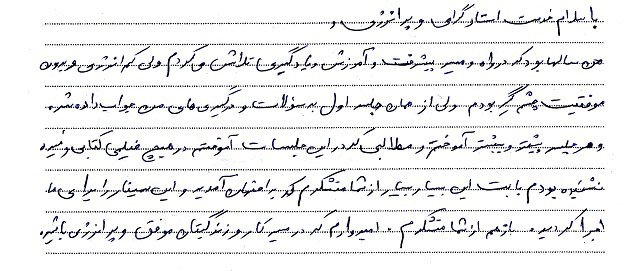 با سلام خدمت استاد گرامی و پر انرژی و
من سالها بود که در راه و مسیر پیشرفت و آموزش و یادگیری تلاش می کردم ولی کم انرژی و بدون
موفقیت چشم گیر بودم. ولی از همان جلسه اول به سؤالات و درگیری های من جواب داده شد.
و هر جلسه بیشتر و بیشتر آموختم و مطالبی که در این جلسات آموختم در هیچ فیلمی کتابی و غیره
نشنیده بودم بابت این بسیار بسیار از شما متشکرم که به اصفهان آمدید و این سمینار را برای ما
اجرا کردید. بازهم از شما متشکرم. امیدوارم که در مسیر کار و زندگیتان موفق و پر انرژی باشید